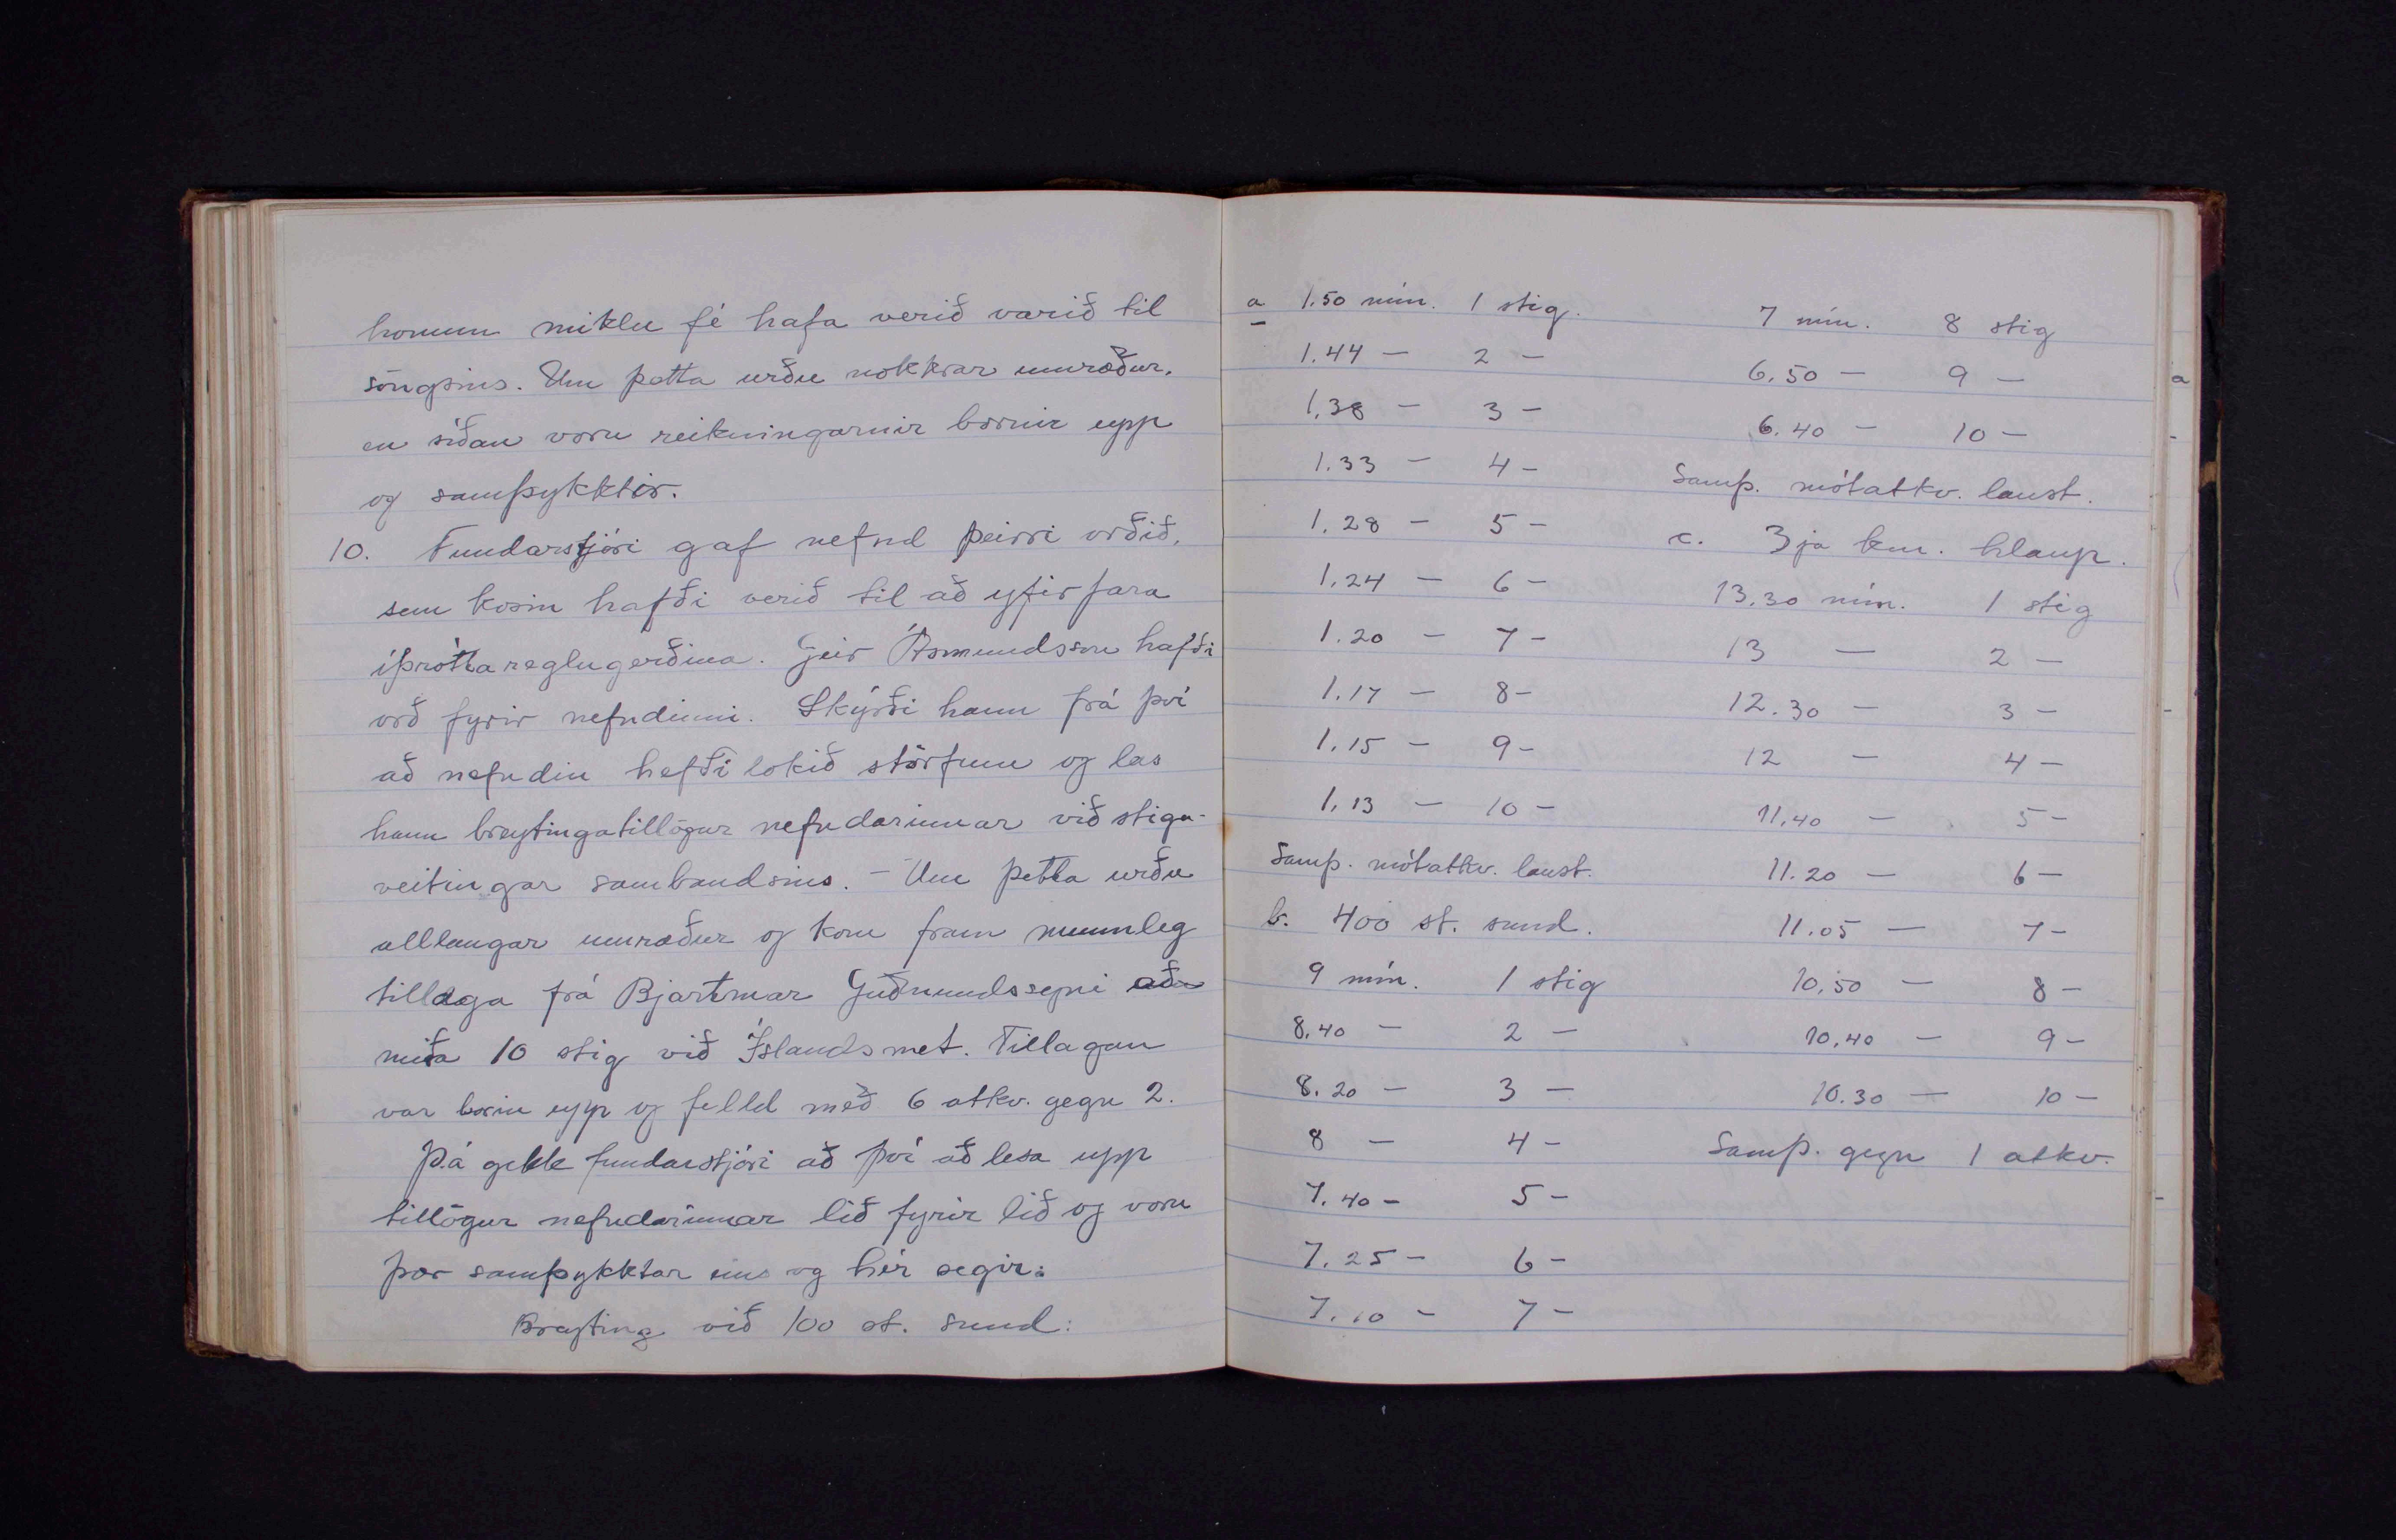 honum miklu fé hafa verið varið til
söngsins. Um þetta urðu nokkrar umræður,
en síðan voru reikningarnir bornir upp
og samþykktir.
10. Fundarstjóri gaf nefnd þeirri orðið,
sem kosin hafði verið til að yfirfara
íþróttareglugerðina. Geir Ásmundsson hafði
orð fyrir nefndinni. Skýrði hann frá því
að nefndin hefði lokið störfum og las
hann breytingatillögur nefndarinnar við stiga-
veitingar sambandsins. - Um þetta urðu
alllangar umræður og kom fram munnleg
tillaga frá Bjartmar Guðmundssyni að
miða 10 stig við Íslandsmet. Tillagan
var borin upp og felld með 6 atkv. gegn 2.
Þá gekk fundarstjóri að því að lesa upp
tillögur nefndarinnar lið fyrir lið og voru
þær samþykktar eins og hér segir:
Breyting við 100 st. sund:
a 1.50 mín. 1 stig.
1.44 — 2 —
1.38 — 3 —
1.33 — 4 —
1.28 — 5 —
1.24 — 6 —
1.20 — 7 —
1.17 — 8 —
1.15 — 9 —
1.13 — 10 —
Samþ. mótatkv. laust.
b. 400 st. sund.
9 mín. 1 stig
8.40 — 2 —
8.20 — 3 —
8 — 4 —
7.40 — 5 —
7.25 — 6 —
7.10 — 7 —
7 mín. 8 stig
6.50 — 9 —
6.40 — 10 —
Samþ. mótatkv. laust.
c. 3ja km. hlaup.
13.30 mín. 1 stig
13 — 2 —
12.30 — 3 —
12 — 4 —
11.40 — 5 —
11.20 — 6 —
11.05 — 7 —
10.50 — 8 —
10.40 — 9 —
10.30 — 10 —
Samþ. gegn 1 atkv.
a